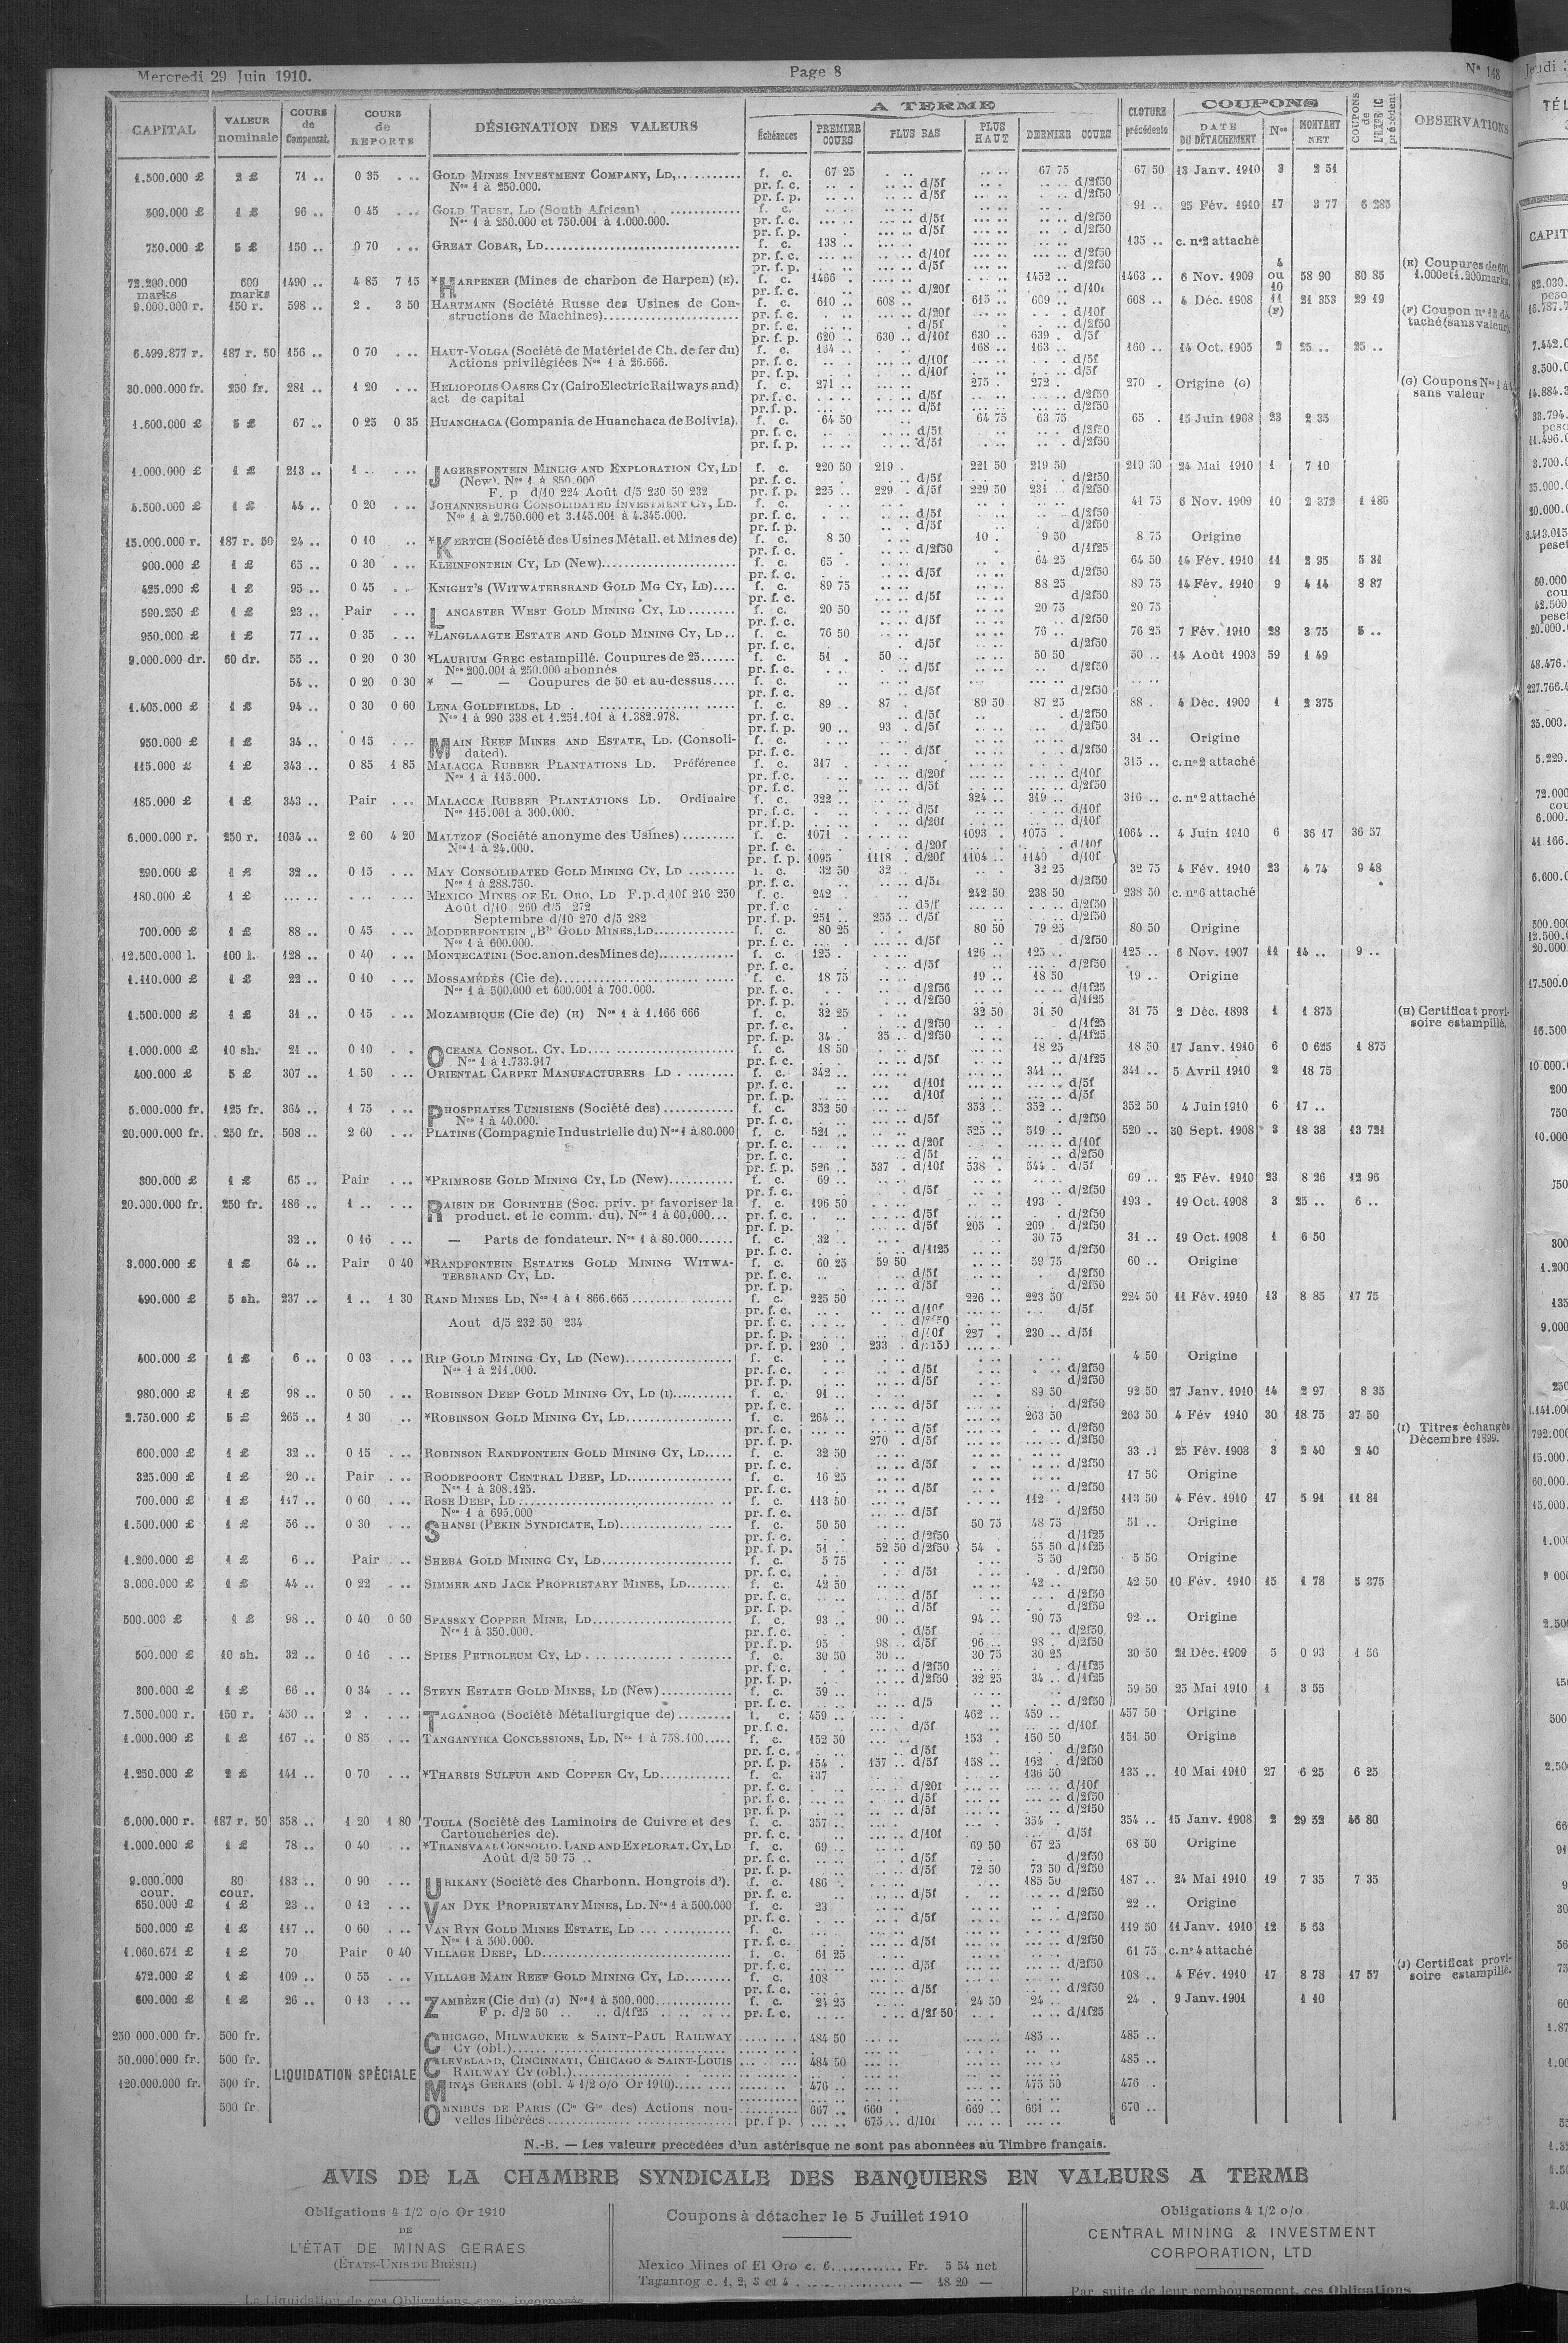 Mercredi 29 Juin 1910. Page 8 N° 148
CAPITAL VALEUR nominale COURS de Compensat. COURS de REPORTS DÉSIGNATION DES VALEURS A TERME CLOTURE précédente COUPONS COUPONS de L'EXERCIC précédent OBSERVATIONS
Échéances PREMIER COURS PLUS BAS PLUS HAUT DERNIER COURS DATE DU DÉTACHEMENT Nos MONTANT NET
1.500.000 £ 2 £ 71 .. 0 35 . .. GOLD MINES INVESTMENT COMPANY, LD, f. c. 67 25 67 75 67 50 13 Janv. 1910 3 2 51
Nos 1 à 250.000. pr. f. c. d/5f d/2f50
pr. f. p. d/5f d/2f50
500.000 £ 1 £ 96 .. 0 45 . .. GOLD TRUST, LD (South African) f. c. 91 .. 25 Fév. 1910 17 3 77 6 285
Nos 1 à 250.000 et 750.001 à 1.000.000. pr. f. c. d/5f d/2f50
pr. f. p. d/5f d/2f50
750.000 £ 5 £ 150 .. 0 70 . .. GREAT COBAR, LD f. c. 138 .. 135 .. c. n°2 attaché
pr. f. c. d/10f d/2f50
pr. f. p. d/5f d/2f50
72.200.000 marks 600 marks 1490 .. 4 85 7 15 *HARPENER (Mines de charbon de Harpen) (E). f. c. 1466 . 1452 .. 1463 .. 6 Nov. 1909 4 ou 10 58 90 80 85 (E) Coupures de 600, 1.000 et 1.200 marks.
pr. f. c. d/20f d/10f
9.000.000 r. 150 r. 598 .. 2 . 3 50 HARTMANN (Société Russe des Usines de Constructions de Machines) f. c. 610 .. 608 .. 615 .. 609 .. 608 .. 4 Déc. 1908 11 (F) 21 353 29 19 (F) Coupon n° 12 détaché (sans valeur)
pr. f. c. d/20f d/10f
pr. f. c. d/5f d/2f50
pr. f. p. 620 .. 630 .. d/10f 630 .. 639 . d/5f
6.499.877 r. 187 r. 50 156 .. 0 70 . .. HAUT-VOLGA (Société de Matériel de Ch. de fer du) f. c. 164 .. 168 .. 163 .. 160 .. 14 Oct. 1905 2 25 .. 25 ..
Actions privilégiées Nos 1 à 26.666. pr. f. c. d/10f d/5f
pr. f. p. d/10f d/5f
30.000.000 fr. 250 fr. 281 .. 1 20 . .. HELIOPOLIS OASES CY (Cairo Electric Railways and) f. c. 271 .. 275 . 272 . 270 . Origine (G) (G) Coupons Nos 1 à
act de capital pr. f. c. d/5f d/2f50 sans valeur
pr. f. p. d/5f d/2f50
1.600.000 £ 5 £ 67 .. 0 25 0 35 HUANCHACA (Compania de Huanchaca de Bolivia). f. c. 64 50 64 75 63 75 65 . 15 Juin 1908 23 2 35
pr. f. c. d/5f d/2f50
pr. f. p. d/5f d/2f50
1.000.000 £ 1 £ 213 .. 1 .. . .. JAGERSFONTEIN MINING AND EXPLORATION CY, LD f. c. 220 50 219 . 221 50 219 50 219 50 24 Mai 1910 1 7 10
(New). Nos 1 à 850.000 pr. f. c. d/5f d/2f50
F. p d/10 224 Août d/5 230 50 232 pr. f. p. 225 .. 229 . d/5f 229 50 231 . d/2f50
4.500.000 £ 1 £ 44 .. 0 20 . .. JOHANNESBURG CONSOLIDATED INVESTMENT CY, LD. f. c. 41 75 6 Nov. 1909 10 2 372 1 186
Nos 1 à 2.750.000 et 3.145.001 à 4.345.000. pr. f. c. d/5f d/2f50
pr. f. p. d/5f d/2f50
15.000.000 r. 187 r. 50 24 .. 0 10 .. *KERTCH (Société des Usines Métall. et Mines de) f. c. 8 50 10 . 9 50 8 75 Origine
pr. f. c. d/2f50 d/1f25
900.000 £ 1 £ 65 .. 0 30 . .. KLEINFONTEIN CY, LD (New) f. c. 65 . 64 25 64 50 14 Fév. 1910 11 2 35 5 31
pr. f. c. d/5f d/2f50
425.000 £ 1 £ 95 .. 0 45 . .. KNIGHT'S (WITWATERSRAND GOLD MG CY, LD) f. c. 89 75 88 25 89 75 14 Fév. 1910 9 4 14 8 87
pr. f. c. d/5f d/2f50
590.250 £ 1 £ 23 .. Pair . .. LANCASTER WEST GOLD MINING CY, LD f. c. 20 50 20 75 20 75
pr. f. c. d/5f d/2f50
950.000 £ 1 £ 77 .. 0 35 . .. *LANGLAAGTE ESTATE AND GOLD MINING CY, LD f. c. 76 50 76 .. 76 25 7 Fév. 1910 28 3 75 5 ..
pr. f. c. d/5f d/2f50
9.000.000 dr. 60 dr. 55 .. 0 20 0 30 *LAURIUM GREC estampillé. Coupures de 25 f. c. 51 . 50 .. 50 50 50 .. 14 Août 1903 59 1 49
Nos 200.001 à 250.000 abonnés pr. f. c. d/5f d/2f50
54 .. 0 20 0 30 * — — Coupures de 50 et au-dessus f. c.
pr. f. c. d/5f d/2f50
1.405.000 £ 1 £ 94 .. 0 30 0 60 LENA GOLDFIELDS, LD f. c. 89 .. 87 . 89 50 87 25 88 . 4 Déc. 1909 1 2 375
Nos 1 à 990 338 et 1.251.101 à 1.382.978. pr. f. c. d/5f d/2f50
pr. f. p. 90 .. 93 . d/5f d/2f50
950.000 £ 1 £ 34 .. 0 15 . .. MAIN REEF MINES AND ESTATE, LD. (Consolidated). f. c. 31 .. Origine
pr. f. c. d/5f d/2f50
115.000 £ 1 £ 343 .. 0 85 1 85 MALACCA RUBBER PLANTATIONS LD. Préférence f. c. 317 . 315 .. c. n° 2 attaché
Nos 1 à 115.000. pr. f. c. d/20f d/10f
pr. f. c. d/5f d/2f50
185.000 £ 1 £ 343 .. Pair . .. MALACCA RUBBER PLANTATIONS LD. Ordinaire f. c. 322 .. 324 .. 319 .. 316 .. c. n° 2 attaché
Nos 115.001 à 300.000. pr. f. c. d/5f d/10f
pr. f. p. d/20f d/10f
6.000.000 r. 250 r. 1034 .. 2 60 4 20 MALTZOF (Société anonyme des Usines) f. c. 1071 1093 . 1075 . 1064 .. 4 Juin 1910 6 36 17 36 57
Nos 1 à 24.000. pr. f. c. d/20f d/10f
pr. f. p. 1095 1118 . d/20f 1104 .. 1140 d/10f
290.000 £ 1 £ 32 .. 0 15 . .. MAY CONSOLIDATED GOLD MINING CY, LD f. c. 32 50 32 .. 32 25 32 75 4 Fév. 1910 23 4 74 9 48
Nos 1 à 288.750. pr. f. c. d/5f d/2f50
180.000 £ 1 £ MEXICO MINES OF EL ORO, LD F.p.d 10f 246 250 f. c. 242 .. 242 50 238 50 238 50 c. n° 6 attaché
Août d/10 260 d/5 272 pr. f. c d5/f d/2f50
Septembre d/10 270 d/5 282 pr. f. p. 251 .. 255 .. d/5f d/2f50
700.000 £ 1 £ 88 .. 0 45 . .. MODDERFONTEIN „B" GOLD MINES, LD f. c. 80 25 80 50 79 25 80 50 Origine
Nos 1 à 600.000. pr. f. c. d/5f d/2f50
12.500.000 l. 100 l. 128 .. 0 40 . .. MONTECATINI (Soc. anon. des Mines de) f. c. 125 . 126 .. 125 .. 125 .. 6 Nov. 1907 11 14 .. 9 ..
pr. f. c. d/5f d/2f50
1.110.000 £ 1 £ 22 .. 0 10 . .. MOSSAMÉDÈS (Cie de) f. c. 18 75 19 .. 18 50 19 .. Origine
Nos 1 à 500.000 et 600.001 à 700.000. pr. f. c. d/2f50 d/1f25
pr. f. p. d/2f50 d/1f25
1.500.000 £ 1 £ 31 .. 0 15 . .. MOZAMBIQUE (Cie de) (H) Nos 1 à 1.166 666 f. c. 32 25 32 50 31 50 31 75 2 Déc. 1898 1 1 875 (H) Certificat provisoire estampillé.
pr. f. c. d/2f50 d/1f25
pr. f. p. 34 . 35 .. d/2f50 d/1f25
1.000.000 £ 10 sh. 21 .. 0 10 . . OCEANA CONSOL. CY, LD f. c. 18 50 18 25 18 50 17 Janv. 1910 6 0 625 1 875
Nos 1 à 1.733.917 pr. f. c. d/5f d/1f25
400.000 £ 5 £ 307 .. 1 50 . .. ORIENTAL CARPET MANUFACTURERS LD f. c. 342 .. 341 .. 341 .. 5 Avril 1910 2 18 75
pr. f. c. d/10f d/5f
pr. f. p. d/10f d/5f
5.000.000 fr. 125 fr. 364 .. 1 75 . .. PHOSPHATES TUNISIENS (Société des) f. c. 352 50 353 .. 352 .. 352 50 4 Juin 1910 6 17 ..
Nos 1 à 40.000. pr. f. c. d/5f d/2f50
20.000.000 fr. 250 fr. 508 .. 2 60 . .. PLATINE (Compagnie Industrielle du) Nos 1 à 80.000 f. c. 521 .. 525 .. 519 .. 520 .. 30 Sept. 1908 3 18 38 13 721
pr. f. c. d/20f d/10f
pr. f. c. d/5f d/2f50
pr. f. p. 526 .. 537 . d/10f 538 . 544 . d/5f
300.000 £ 1 £ 65 .. Pair . .. *PRIMROSE GOLD MINING CY, LD (New) f. c. 69 .. 69 .. 25 Fév. 1910 23 8 26 12 96
pr. f. c. d/5f d/2f50
20.000.000 fr. 250 fr. 186 .. 1 .. . .. RAISIN DE CORINTHE (Soc. priv. pr favoriser la f. c. 196 50 193 . 193 . 19 Oct. 1908 3 25 .. 6 ..
product. et le comm. du). Nos 1 à 60.000 pr. f. c. d/5f d/2f50
pr. f. p. d/5f 205 . 209 . d/2f50
32 .. 0 16 . .. — Parts de fondateur. Nos 1 à 80.000 f. c. 32 .. 30 75 31 .. 19 Oct. 1908 1 6 50
pr. f. c. d/1f25 d/2f50
3.000.000 £ 1 £ 64 .. Pair 0 40 *RANDFONTEIN ESTATES GOLD MINING WITWATERSRAND CY, LD. f. c. 60 25 59 50 59 75 60 .. Origine
pr. f. c. d/5f d/2f50
pr. f. p. d/5f d/2f50
490.000 £ 5 sh. 237 .. 1 .. 1 30 RAND MINES LD, Nos 1 à 1 866.665 f. c. 225 50 226 .. 223 50 224 50 11 Fév. 1910 13 8 85 17 75
pr. f. c. d/10f d/5f
Aout d/5 232 50 234 pr. f. c.
pr. f. p. 227 . 230 .. d/5f
pr. f. p. 230 . 233 .
400.000 £ 1 £ 6 .. 0 03 . .. RIP GOLD MINING CY, LD (New) f. c. 4 50 Origine
Nos 1 à 211.000. pr. f. c. d/5f d/2f50
pr. f. p. d/5f d/2f50
980.000 £ 1 £ 98 .. 0 50 . .. ROBINSON DEEP GOLD MINING CY, LD (I) f. c. 91 .. 89 50 92 50 27 Janv. 1910 14 2 97 8 35
pr. f. c. d/5f d/2f50
2.750.000 £ 5 £ 265 .. 1 30 .. *ROBINSON GOLD MINING CY, LD f. c. 264 .. 263 50 263 50 4 Fév 1910 30 18 75 37 50 (I) Titres échangés Décembre 1899.
pr. f. c. d/5f d/2f50
pr. f. p. 270 . d/5f d/2f50
600.000 £ 1 £ 32 .. 0 15 . .. ROBINSON RANDFONTEIN GOLD MINING CY, LD f. c. 32 50 33 .. 25 Fév. 1908 3 2 40 2 40
pr. f. c. d/5f d/2f50
325.000 £ 1 £ 20 .. Pair . .. ROODEPOORT CENTRAL DEEP, LD f. c. 16 25 17 50 Origine
Nos 1 à 308.125. pr. f. c. d/5f d/2f50
700.000 £ 1 £ 117 .. 0 60 . .. ROSE DEEP, LD f. c. 113 50 112 . 113 50 4 Fév. 1910 17 5 91 11 81
Nos 1 à 695.000 pr. f. c. d/5f d/2f50
1.500.000 £ 1 £ 56 .. 0 30 . .. SHANSI (PEKIN SYNDICATE, LD) f. c. 50 50 50 75 48 75 51 .. Origine
pr. f. c. d/2f50 d/1f25
pr. f. p. 51 . 52 50 d/2f50 54 . 55 50 d/1f25
1.200.000 £ 1 £ 6 .. Pair .. SHEBA GOLD MINING CY, LD f. c. 5 75 5 50 5 50 Origine
pr. f. c. d/5f d/2f50
3.000.000 £ 1 £ 44 .. 0 22 . .. SIMMER AND JACK PROPRIETARY MINES, LD f. c. 42 50 42 .. 42 50 10 Fév. 1910 15 1 78 5 375
pr. f. c. d/5f d/2f50
pr. f. p. d/5f d/2f50
500.000 £ 1 £ 98 .. 0 40 0 60 SPASSKY COPPER MINE, LD f. c. 93 .. 90 .. 94 .. 90 75 92 .. Origine
Nos 1 à 350.000. pr. f. c. d/5f d/2f50
pr. f. p. 95 98 .. d/5f 96 .. 98 . d/2f50
500.000 £ 10 sh. 32 .. 0 16 . .. SPIES PETROLEUM CY, LD f. c. 30 50 30 .. 30 75 30 25 30 50 21 Déc. 1909 5 0 93 1 56
pr. f. c. d/2f50 d/1f25
pr. f. p. d/2f50 32 25 34 .. d/1f25
300.000 £ 1 £ 66 .. 0 34 . .. STEYN ESTATE GOLD MINES, LD (New) f. c. 59 .. 59 50 25 Mai 1910 1 3 55
pr. f. c. d/5 d/2f50
7.500.000 r. 150 r. 450 .. 2 . . .. TAGANROG (Société Métallurgique de) f. c. 459 .. 462 .. 459 .. 457 50 Origine
pr. f. c. d/5f d/10f
1.000.000 £ 1 £ 167 .. 0 85 . .. TANGANYIKA CONCESSIONS, LD. Nos 1 à 758.100 f. c. 152 50 153 . 150 50 151 50 Origine
pr. f. c. d/5f d/2f50
pr. f. p. 154 . 157 .. d/5f 158 .. 162 . d/2f50
1.250.000 £ 2 £ 141 .. 0 70 . .. *THARSIS SULFUR AND COPPER CY, LD f. c. 137 136 50 135 .. 10 Mai 1910 27 6 25 6 25
pr. f. c. d/20f d/10f
pr. f. c. d/5f d/2f50
pr. f. p. d/5f d/2f50
6.000.000 r. 187 r. 50 358 .. 1 20 1 80 TOULA (Société des Laminoirs de Cuivre et des Cartoucheries de). f. c. 357 .. 354 . 354 .. 15 Janv. 1908 2 29 52 46 80
pr. f. c. d/10f d/5f
1.000.000 £ 1 £ 78 .. 0 40 . .. *TRANSVAAL CONSOLID. LAND AND EXPLORAT. CY, LD f. c. 69 .. 69 50 67 25 68 50 Origine
Août d/2 50 75 .. pr. f. c. d/5f d/2f50
pr. f. p. d/5f 72 50 73 50 d/2f50
9.000.000 cour. 80 cour. 183 .. 0 90 . .. URIKANY (Société des Charbonn. Hongrois d'). f. c. 186 . 185 50 187 .. 24 Mai 1910 19 7 35 7 35
pr. f. c. d/5f d/2f50
650.000 £ 1 £ 23 .. 0 12 . .. VAN DYK PROPRIETARY MINES, LD. Nos 1 à 500.000 f. c. 23 22 .. Origine
pr. f. c. d/5f d/2f50
500.000 £ 1 £ 117 .. 0 60 . .. VAN RYN GOLD MINES ESTATE, LD f. c. 119 50 11 Janv. 1910 12 5 63
Nos 1 à 500.000. pr. f. c. d/5f d/2f50
1.060.671 £ 1 £ 70 Pair 0 40 VILLAGE DEEP, LD f. c. 61 25 61 75 c. n° 4 attaché
pr. f. c. d/5f d/2f50
472.000 £ 1 £ 109 .. 0 55 . .. VILLAGE MAIN REEF GOLD MINING CY, LD f. c. 108 108 .. 4 Fév. 1910 17 8 78 17 57 (J) Certificat provisoire estampillé.
pr. f. c. d/5f d/2f50
600.000 £ 1 £ 26 .. 0 13 . .. ZAMBÈZE (Cie du) (J) Nos 1 à 500.000 f. c. 24 25 24 50 24 .. 24 . 9 Janv. 1901 1 10
F p. d/2 50 .. .. d/1f25 pr. f. c. d/2f 50 d/1f25
250 000.000 fr. 500 fr. CHICAGO, MILWAUKEE & SAINT-PAUL RAILWAY CY (obl.) 484 50 485 .. 485 ..
50.000.000 fr. 500 fr. CLEVELAND, CINCINNATI, CHICAGO & SAINT-LOUIS RAILWAY CY (obl.) 484 50 485 ..
LIQUIDATION SPÉCIALE
120.000.000 fr. 500 fr. MINAS GERAES (obl. 4 1/2 o/o Or 1910) 476 .. 475 50 476 .
500 fr OMNIBUS DE PARIS (Cie Gle des) Actions nouvelles libérées 667 .. 660 . 669 .. 661 .. 670 ..
pr. f p. 675 .. d/10f
N.-B. — Les valeurs précédées d'un astérisque ne sont pas abonnées au Timbre français.
AVIS DE LA CHAMBRE SYNDICALE DES BANQUIERS EN VALEURS A TERME
Obligations 4 1/2 o/o Or 1910
DE
L'ÉTAT DE MINAS GERAES
(ÉTATS-UNIS DU BRÉSIL)
La Liquidation de ces Obligations sera incorporée
Coupons à détacher le 5 Juillet 1910
Mexico Mines of El Oro c. 6 Fr. 5 54 net
Taganrog c. 1, 2, 3 et 4 — 18 20 —
Obligations 4 1/2 o/o
CENTRAL MINING & INVESTMENT
CORPORATION, LTD
Par suite de leur remboursement, ces Obligations